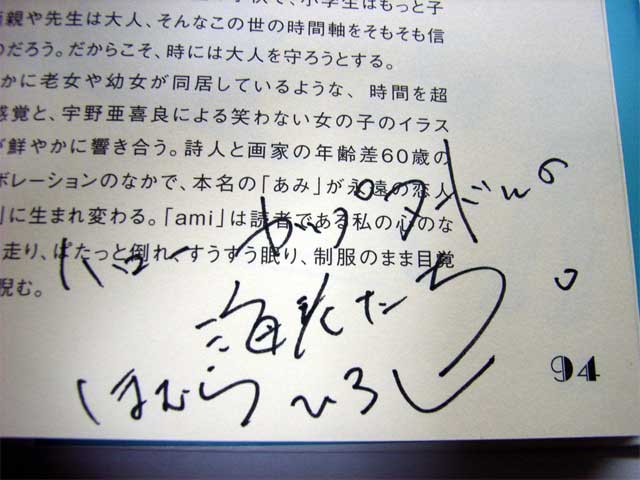 校で、小学生はもっと子
親や先生は大人、そんなこの世の時間軸をそもそも信
のだろう。だからこそ、時には大人を守ろうとする。
かに老女や幼女が同居しているような、時間を超
感覚と、宇野亜喜良による笑わない女の子のイラス
が鮮やかに響き合う。詩人と画家の年齢差60歳の
ボレーションのなかで、本名の「あみ」が永遠の恋人
」に生まれ変わる。「ami」は読者である私の心のな
走り、ぱたっと倒れ、すうすう眠り、制服のまま目覚
睨む。
ハロー カップヌードルの
海老たち。
ほむらひろし
94